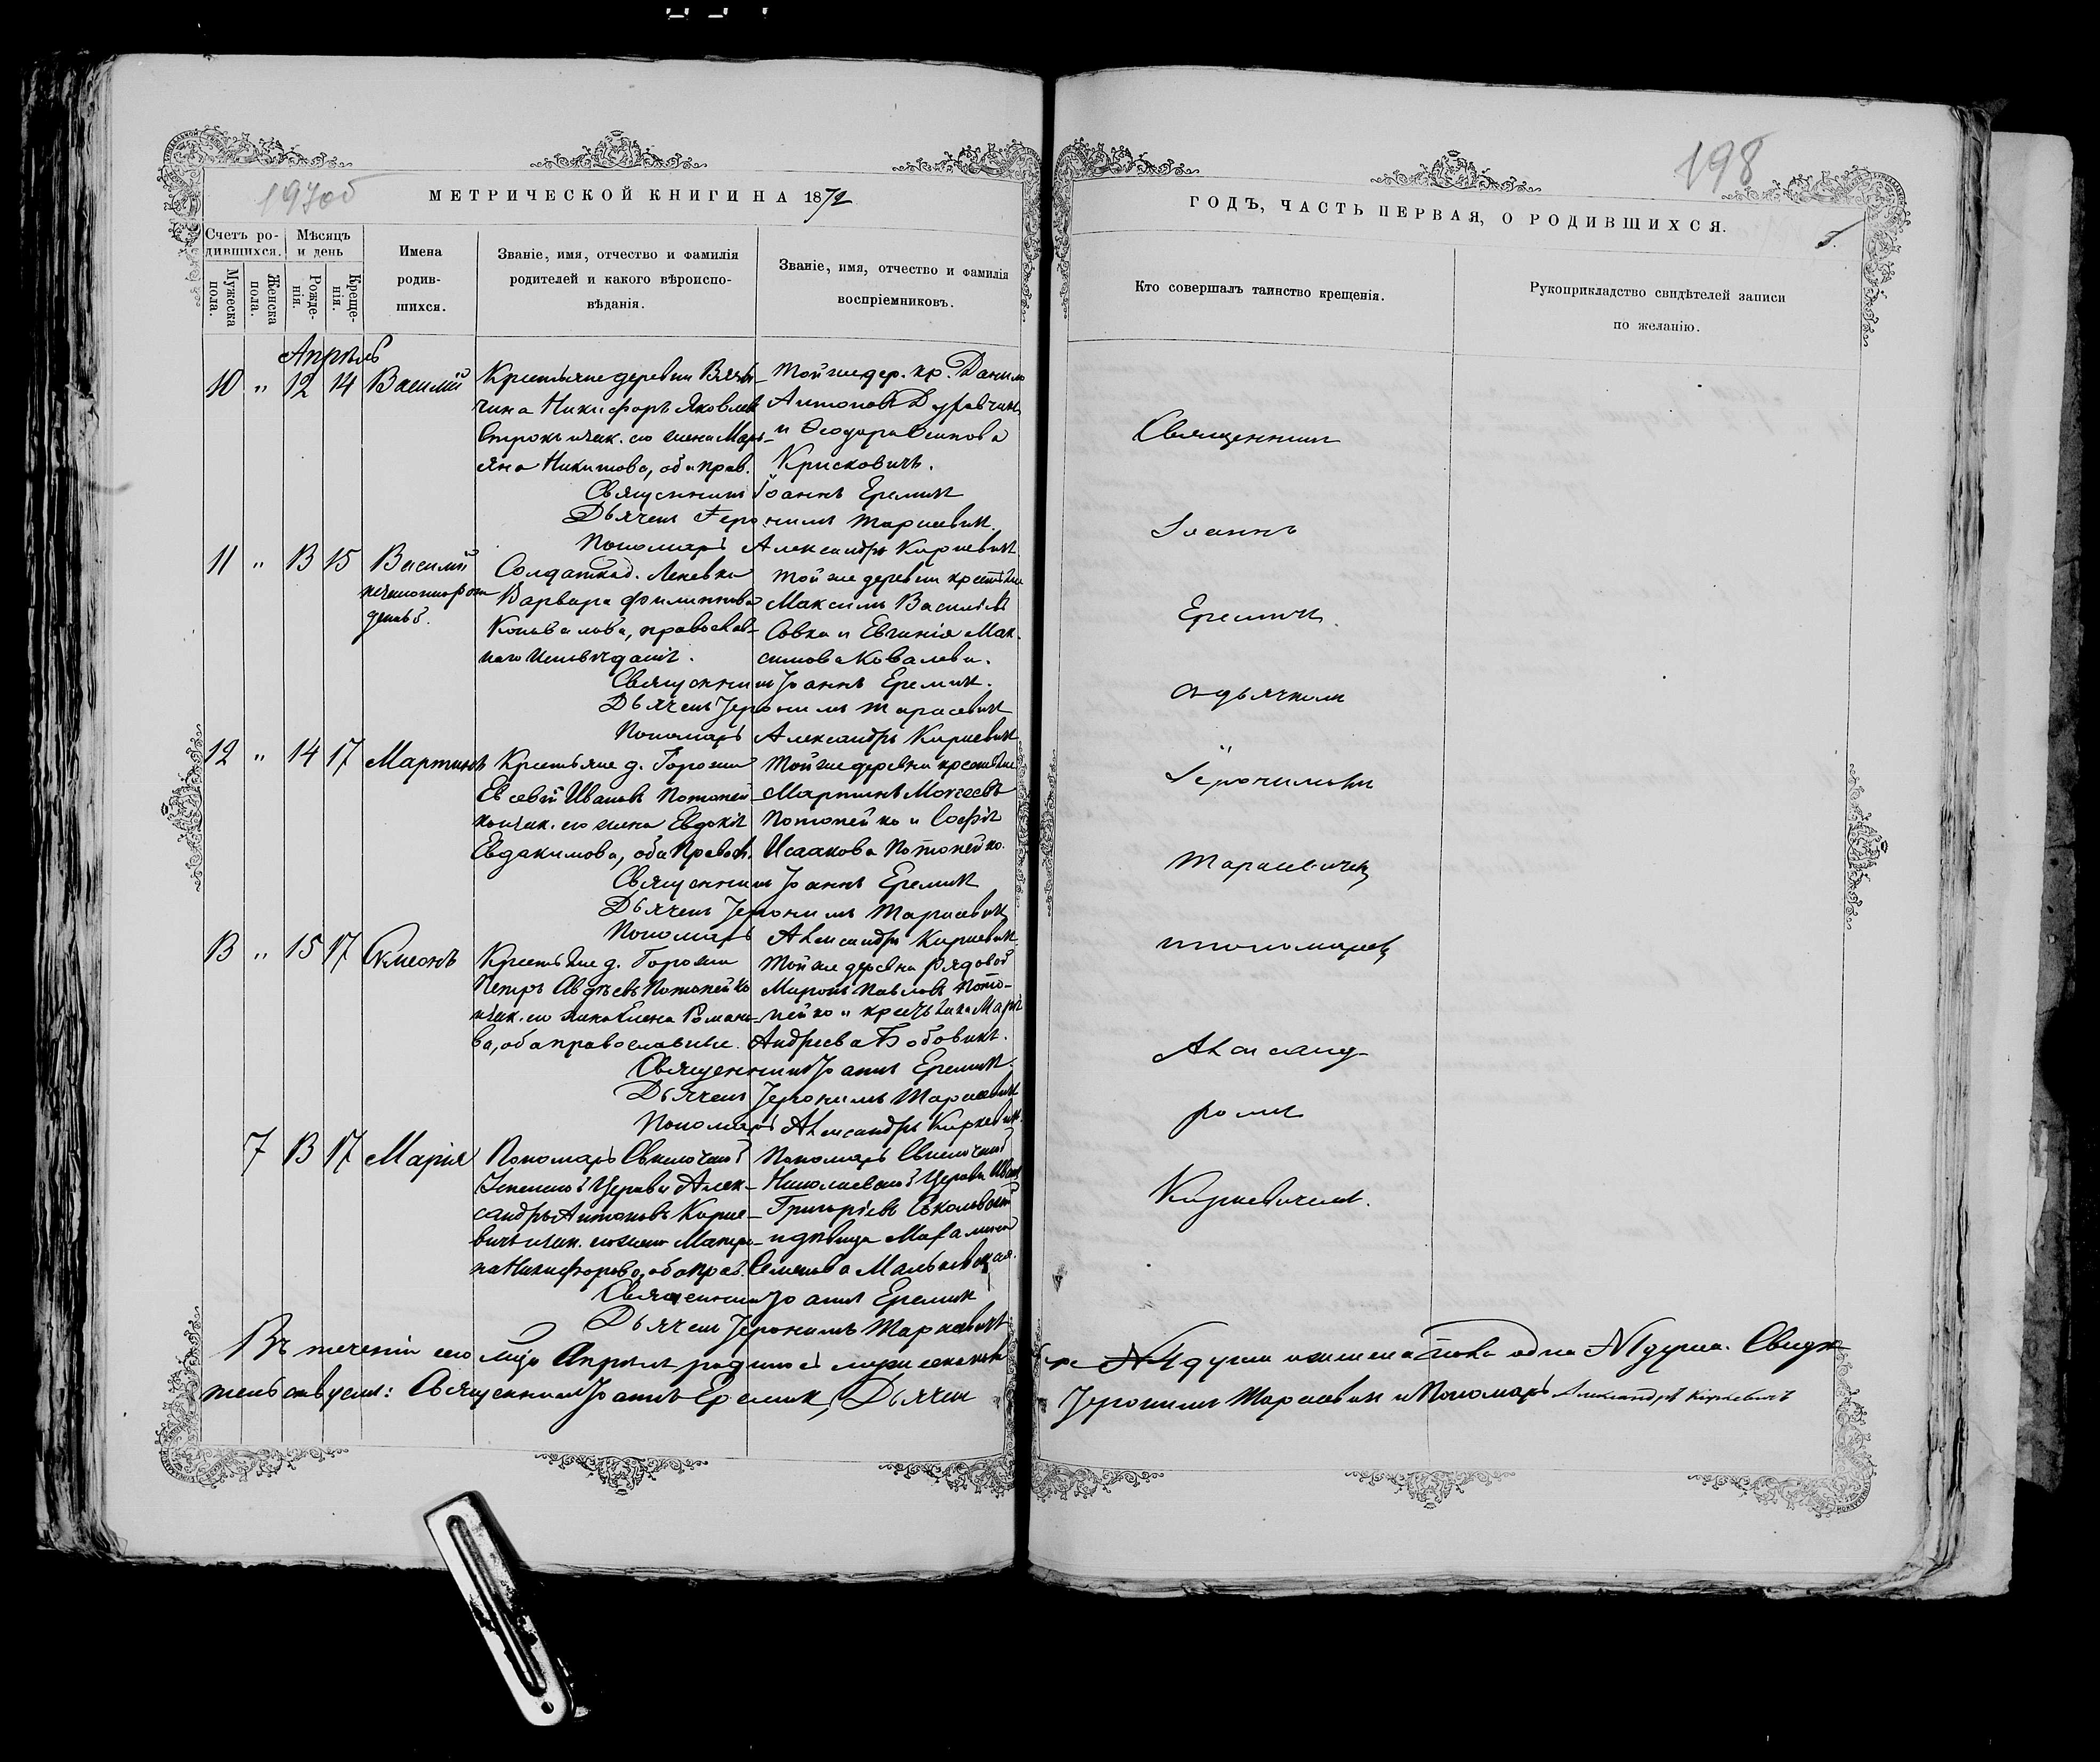 197об
МЕТРИЧЕСКОЙ КНИГИ НА 1872
Счетъ ро-
дившихся.
Мѣсяцъ
и день
Мужеска
пола.
Женска
пола.
Рожде-
нія.
Креще-
нія.
Имена
родив-
шихся.
Званіе, имя, отчество и фамилія
родителей и какого вѣроиспо-
вѣданія.
Званіе, имя, отчество и фамилія
воспріемниковъ.
Апрѣль
10 " 12 14 Василій
Крестьяне деревни
Никифоръ Яковлевъ
зак. его жена Марь-
яна Никитова, оба прав.
Той же дер. кр. Данило
Антоновъ
и Ѳеодора Осипова
Крисковичъ.
Священникъ Іоаннъ Еремичъ
Дьячекъ Іеронимъ Тарасевичъ.
Пономарь Александръ Киркевичъ
11 " 13 15 Василій
незаконнорож
денный.
Солдатка д.
Варвара Филиппова
Ковалева, православ-
наго исповѣданія.
Той же деревни крестьяне
Максимъ Васильевъ
Совка и Евгенія Мак-
симова Ковалева.
Священникъ Іоаннъ Еремичъ.
Дьячекъ Іеронимъ Тарасевичъ
Пономарь Александръ Киркевичъ
12 " 14 17 Мартинъ
Крестьяне д. Горожи
Евсевій Ивановъ Потапей-
ко и зак. его жена Евдокія
Евдакимова, оба правосл.
Той же деревни крестьяне
Мартинъ Моисеевъ
Потопейко и Софія
Исаакова Потопейко.
Священникъ Іоаннъ Еремичъ
Дьячекъ Іеронимъ Тарасевичъ
Пономарь Александръ Киркевичъ.
13 " 15 17 Симеонъ
Крестьяне д. Горожи
Петръ Авдѣевъ Потопейко
и зак. его жена Елена Романо-
ва, оба православные.
Той же деревни рядовой
Миронъ Павловъ Пото-
пейко и крестьянка Марія
Андреева Бобовикъ.
Священникъ Іоаннъ Еремичъ.
Дьячекъ Іеронимъ Тарасевичъ
Пономарь Александръ Киркевичъ.
7 13 17 Марія
Пономарь
Успенской Церкви Алек-
сандръ Антоновъ Кирке-
вичъ и зак. его жена Матро-
на Никифорова, оба прав.
Пономарь
Николаевской Церкви Иванъ
Григорьевъ
и дѣвица
Семенова
Священникъ Іоаннъ Еремичъ
Дьячекъ Іеронимъ Тарасевичъ
Въ теченіи сего м-ца Апрѣля родилось мужескаго
тельствуемъ: Священникъ Іоаннъ Еремичъ, Дьячекъ
198
ГОДЪ, ЧАСТЬ ПЕРВАЯ, О РОДИВШИХСЯ.
Кто совершалъ таинство крещенія.
Рукоприкладство свидѣтелей записи
по желанію.
Священникъ
Іоаннъ
Еремичъ.
съ дьячкомъ
Іеронимомъ
Тарасевичемъ
и пономаремъ
Александ-
ромъ
Киркевичемъ.
№4 души и женска пола одна №1 душа. Свидѣ-
Іеронимъ Тарасевичъ и Пономарь Александръ Киркевичъ